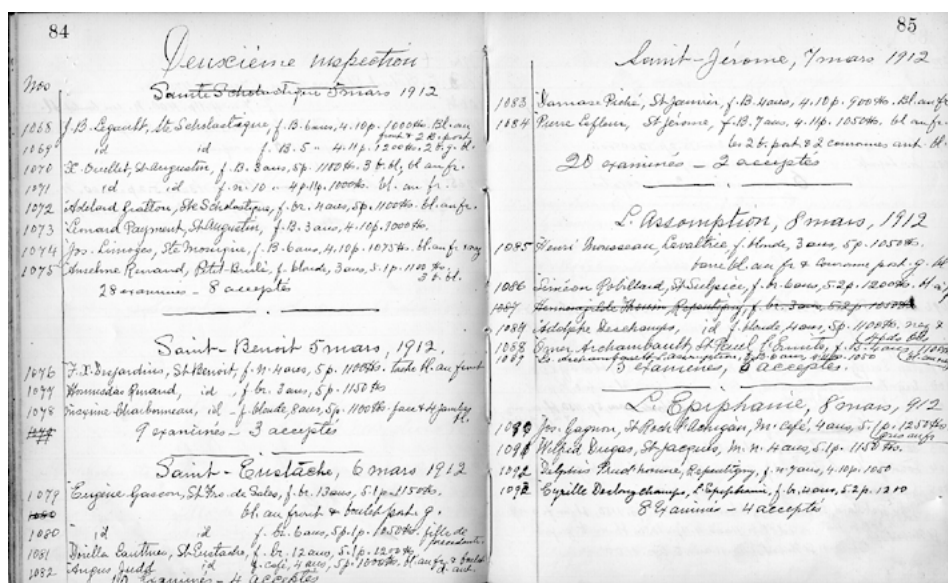 84
Deuxième inspection
Nos
Sainte Scholastique 5 mars 1912
1068 J. B. Legault, Ste Scholastique, f. B. 6 ans, 4.10 p. 1000 lbs. Bl. au
front & 2 B. post.
1069 id id f. B. 5 " 4.11 p. 1200 lbs. 2 b. g. bl.
1070 X. Ouellet, St Augustin, f. B. 3 ans, 5 p. 1180 lbs. 3 b. bl, bl au fr.
1071 id id f. n. 10 " 4 p. 11 p. 1000 lbs. bl. au fr.
1072 Adelard Gratton, Ste Scholastique, f. br. 4 ans, 5 p. 1100 lbs. bl au fr.
1073 Paquent, St Augustin, f. B. 3 ans, 4.10 p. 1000 lbs.
1074 Jos. Limoges, Ste Monique, f. B. 6 ans, 4.10 p. 1075 lbs. bl. au fr
1075 Anselme Renaud, Petit-Brulé, f. blonde, 3 ans, 5.1 p. 1100 lbs.
3 b. bl.
28 examinés - 8 acceptés
Saint-Benoit 5 mars, 1912.
1076 F. X. Desjardins, St Benoit, f. n. 4 ans, 5 p. 1100 lbs. tache bl. au front
1077 Hormisdas Renaud, id, f. br. 3 ans, 5 p. 1150 lbs
1078 Charbonneau, id - f. blonde, 2 ans, 5 p. 1100 lbs. face & 4 jambes
9 examinés - 3 acceptés
Saint-Eustache, 6 mars 1912
1079 Eugène Gascon, St Frs. de Sales, f. br. 13 ans, 5.1 p. 1150 lbs.
1080 bl. au front & boulet post. g.
1080 id id f. br. 6 ans, 5 p. 1 p. 1050 lbs. fille de
précédente
1081 Gauthier, St Eustache, f. br. 12 ans, 5.1 p. 1200 lbs.
1082 Angus Judd id f. café, 4 ans, 5 p. 1000 lbs. bl. au fr. & boulet
d. ant.
Examinés - 4 Acceptés
85
Saint-Jérome, 7 mars 1912
1083 Damase Piché, St Janvier, f. B. 4 ans, 4.10 p. 900 lbs. Bl. au fr.
1084 Pierre Lafleur, St Jérome, f. B. 7 ans, 4.11 p. 1050 lbs. bl au fr.
les 2 b. post & 2 couronnes ant. bl.
20 examinés - 2 acceptés
L'Assomption, 8 mars, 1912
1085 Henri Mousseau, Lavaltrie, f. blonde, 3 ans, 5 p. 1050 lbs.
bl. au fr & couronne post. g. bl
1086 Siméon Robillard, St Sulpice, f. br. 6 ans, 5.2 p. 1200 lbs. bl
1087 Repentigny, f. br. 3 ans, 5.2 p. 1050 lbs
1087 Adolphe Deschamps, id f. blonde, 4 ans, 5 p. 1100 lbs.
1088 Omer Archambault, St Paul l'Ermite, f. B. 4 ans, 1100
1089 L'Assomption, f. B. 6 ans, 1050
13 examinés, 6 acceptés.
L'Epiphanie, 8 mars, 912
1090 Jos. Gagnon, St Roch l'Achigan, m. café, 4 ans, 5.1 p. 1250 lbs
1091 Wilfrid Dugas, St Jacques, m. n. 4 ans, 5.1 p. 1150 lbs.
1092 Prudhomme, Repentigny, f. n. 7 ans, 4.10 p. 1050
1093 Cyrille Deslongchamps, L'Epiphanie, f. br. 4 ans, 5.2 p. 1200
8 Examinés - 4 acceptés